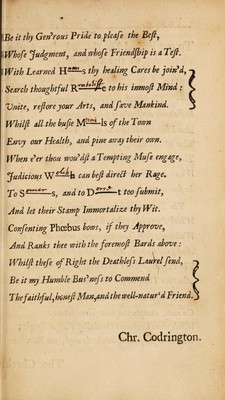 Be it thy Gen'rous Pride to please the Best,
Whose Judgment, and whose Friendship is a Test.
With Learned H——s thy healing Cares be join'd,
Search thoughtful R——e to his inmost Mind:
Unite, restore your Arts, and save Mankind.
Whilst all the busie M——ls of the Town
Envy our Health, and pine away their own.
When e'er thou wou'dst a Tempting Muse engage,
Judicious W——h can best direct her Rage.
To S——s, and to D——t too submit,
And let their Stamp Immortalize thy Wit.
Consenting Phœbus bows, if they Approve,
And Ranks thee with the foremost Bards above:
Whilst these of Right the Deathless Laurel send,
Be it my Humble Bus'ness to Commend
The faithful, honest Man, and the well-natur'd Friend.
Chr. Codrington.